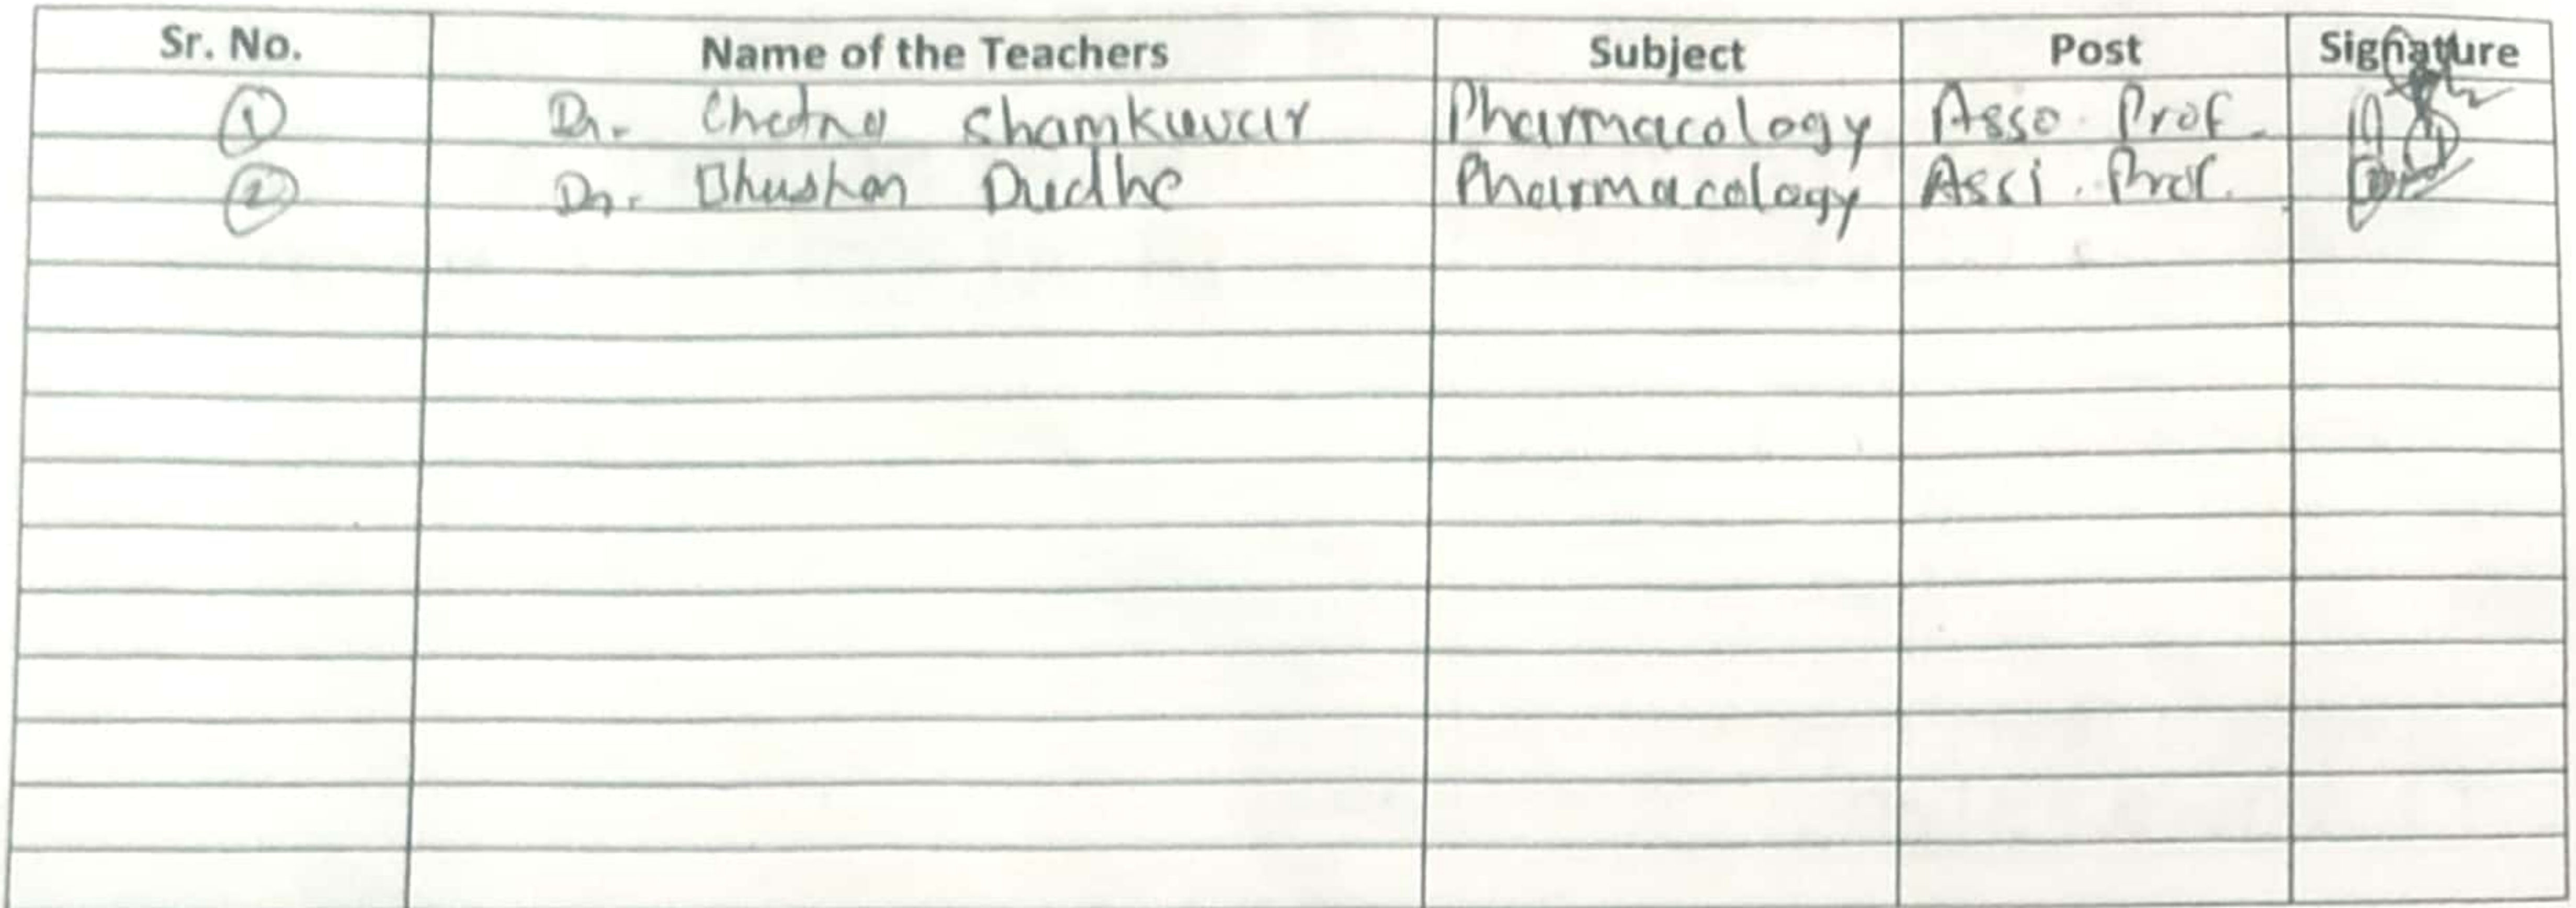 Sr. No. Name of the Teachers Subject Post Signature
1 Dr. Chetna Shamkuwar Pharmacology Asso. Prof.
2 Dr. Bhushan Dudhe Pharmacology Assi. Prof.